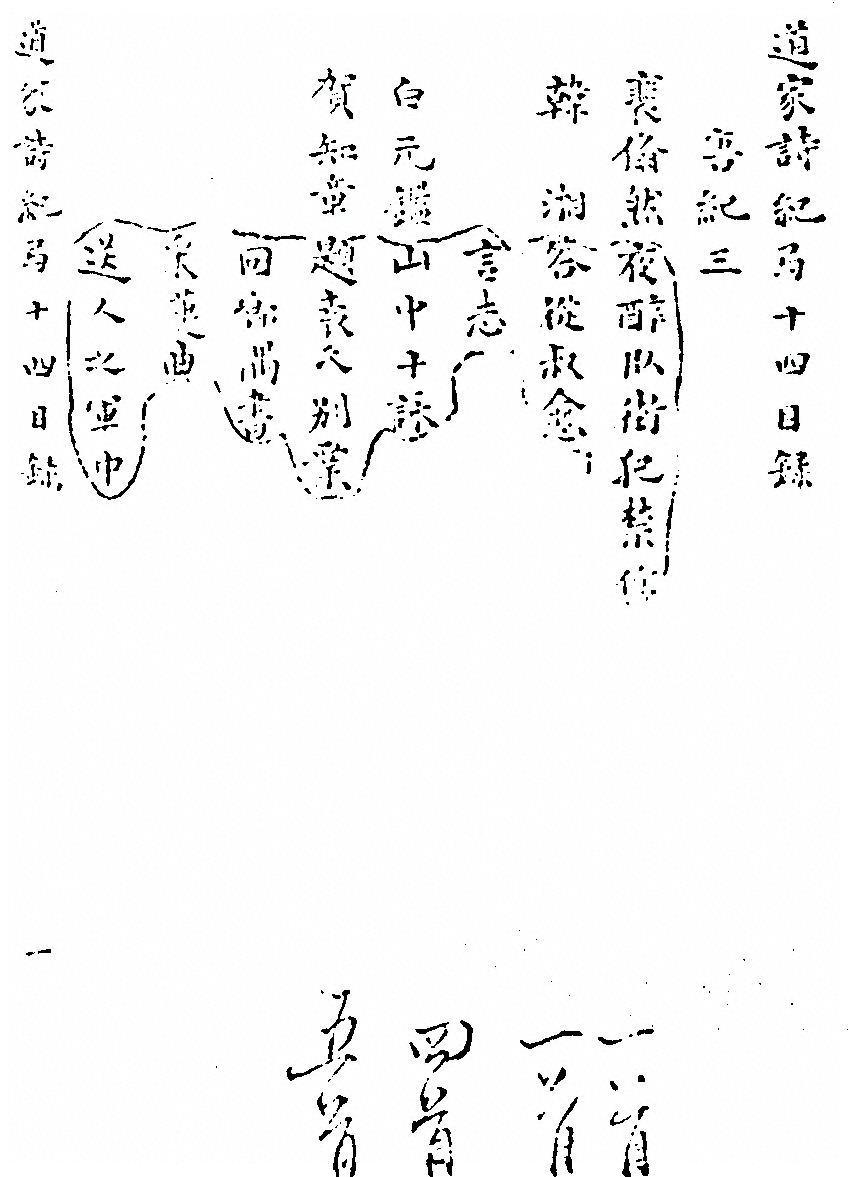 道家詩紀弓十四目録
唐紀三
裴翛然夜醉臥街犯禁作
一首
韓　湘答從叔愈
一首
言志
白元鑑山中十詠
四首
賀知章題袁氏別業
五首
回鄉偶書
采蓮曲
送人之軍中
道家詩紀弓十四目録
一